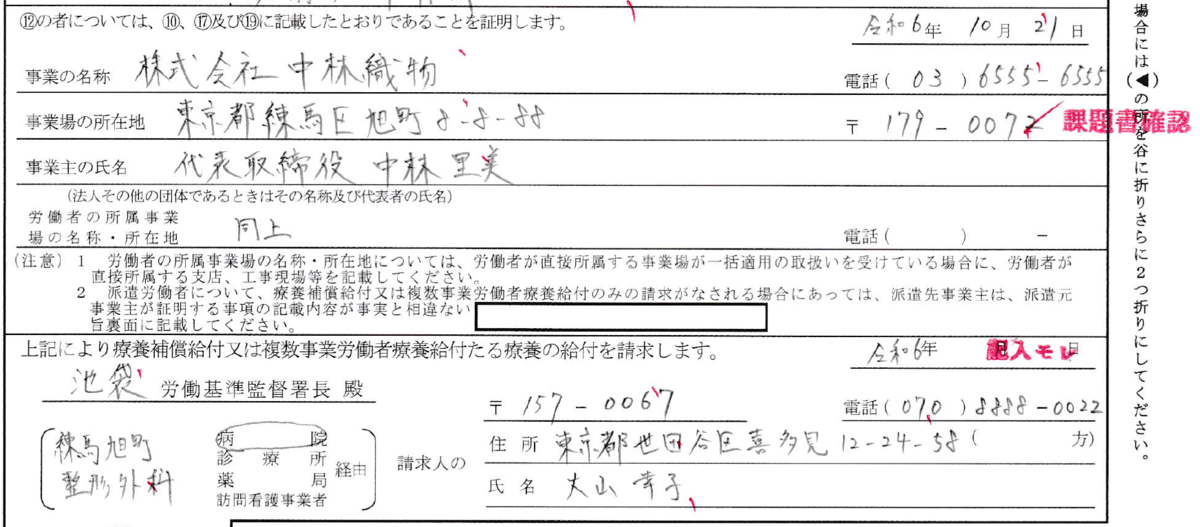 ⑫の者については、⑩、⑰及び⑲に記載したとおりであることを証明します。
令和6年 10月 21日
事業の名称 株式会社 中林織物 電話( 03 ) 6555 - 6555
事業場の所在地 東京都練馬区旭町8-8-88 〒 179 - 0072 課題書確認
事業主の氏名 代表取締役 中林 里美
(法人その他の団体であるときはその名称及び代表者の氏名)
労働者の所属事業
場の名称・所在地 同上 電話( ) -
(注意) 1 労働者の所属事業場の名称・所在地については、労働者が直接所属する事業場が一括適用の取扱いを受けている場合に、労働者が
直接所属する支店、工事現場等を記載してください。
2 派遣労働者について、療養補償給付又は複数事業労働者療養給付のみの請求がなされる場合にあっては、派遣先事業主は、派遣元
事業主が証明する事項の記載内容が事実と相違ない
旨裏面に記載してください。
上記により療養補償給付又は複数事業労働者療養給付たる療養の給付を請求します。 令和6年 月 日
記入モレ
池袋 労働基準監督署長 殿
〒 157 - 0067 電話( 070 ) 8888 - 0022
練馬旭町
整形外科
病院
診療所
薬局
訪問看護事業者
経由
請求人の
住所 東京都世田谷区喜多見 12-24-58 ( 方)
氏名 大山 幸子
場合には(◀)の所を谷に折りさらに2つ折りにしてください。